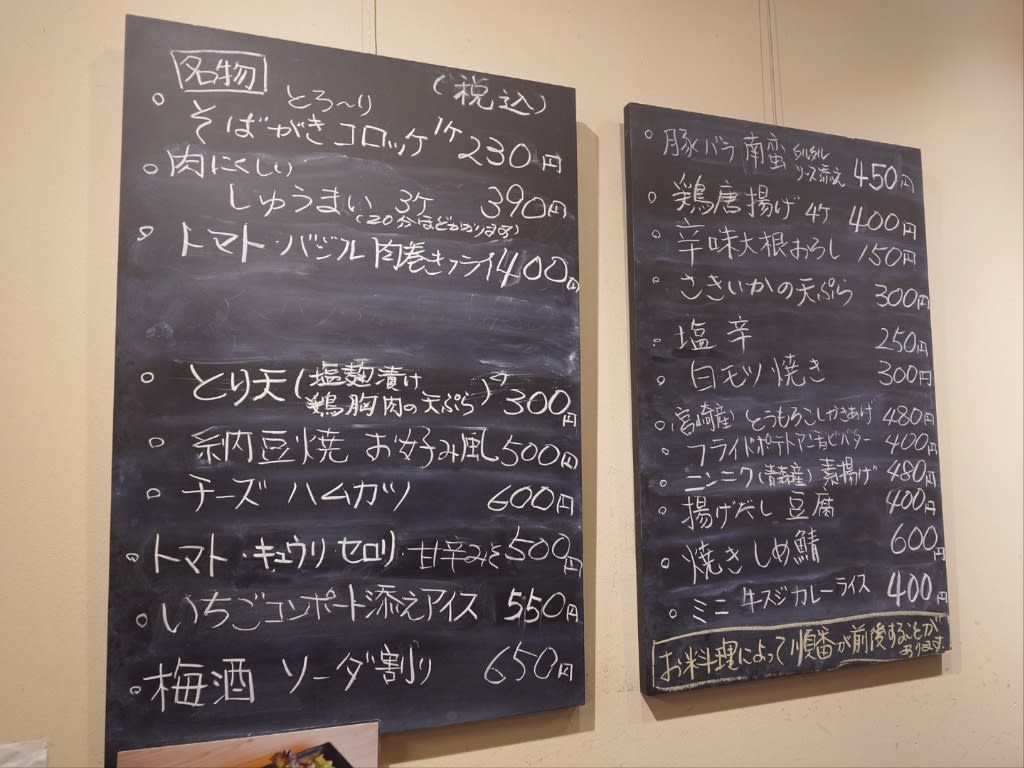 名物
(税込)
とろ〜り
。そばがきコロッケ 1ケ 230円
。肉にくしい
しゅうまい 3ケ 390円
(20分ほどかかります)
。トマト・バジル肉巻きフライ 400円
。とり天(塩麹漬け
鶏胸肉の天ぷら) 300円
。納豆焼 お好み風 500円
。チーズ ハムカツ 600円
。トマト・キュウリ セロリ・甘辛みそ 500円
。いちごコンポート添えアイス 550円
。梅酒 ソーダ割り 650円
。豚バラ南蛮 タルタル
ソース添え 450円
。鶏唐揚げ 4ケ 400円
。辛味大根おろし 150円
。さきいかの天ぷら 300円
。塩辛 250円
。白モツ焼き 300円
。宮崎産 とうもろこしかきあげ 480円
。フライドポテトアンチョビバター 400円
。ニンニク(青森産)素揚げ 480円
。揚げだし豆腐 400円
。焼きしめ鯖 600円
。ミニ 牛スジカレーライス 400円
お料理によって順番が前後することが
あります。